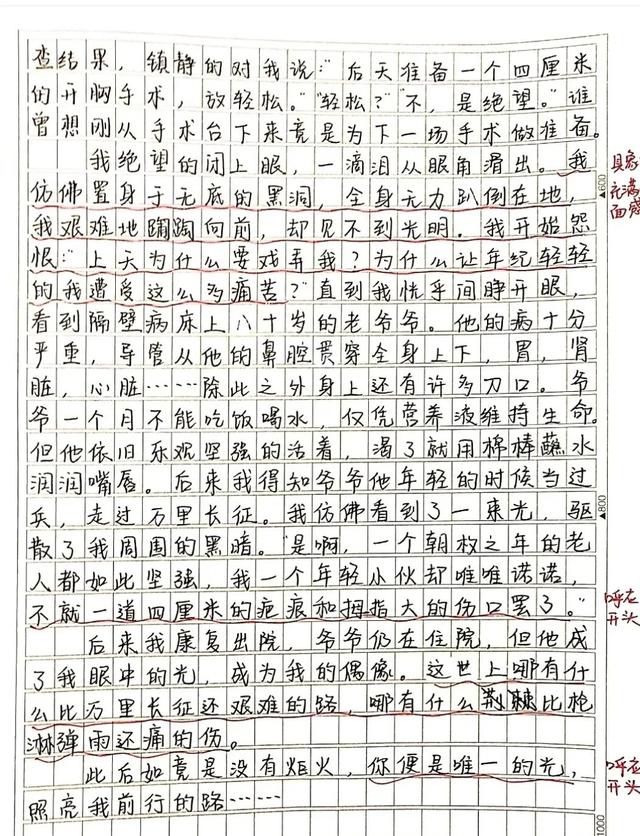 查结果，镇静的对我说：“后天准备一个四厘米
的开胸手术，放轻松。”“轻松？”“不，是绝望。”谁
曾想刚从手术台下来竟是为下一场手术做准备。
我绝望的闭上眼，一滴泪从眼角滑出。我
仿佛置身于无底的黑洞，全身无力趴倒在地，
我艰难地蹒跚向前，却见不到光明。我开始怨
恨：“上天为什么要戏弄我？为什么让年纪轻轻
的我遭受这么多痛苦？”直到我恍乎间睁开眼，
看到隔壁病床上八十岁的老爷爷。他的病十分
严重，导管从他的鼻腔贯穿全身上下，胃，肾
脏，心脏……除此之外身上还有许多刀口。爷
爷一个月不能吃饭喝水，仅凭营养液维持生命。
但他依旧乐观坚强的活着，渴了就用棉棒蘸水
润润嘴唇。后来我得知爷爷他年轻的时候当过
兵，走过万里长征。我仿佛看到了一束光，驱
散了我周围的黑暗。“是啊，一个朝枚之年的老
人都如此坚强，我一个年轻小伙却唯唯诺诺，
不就一道四厘米的疤痕和拇指大的伤口罢了。”
后来我康复出院，爷爷仍在住院，但他成
了我眼中的光，成为我的偶像。这世上哪有什
么比万里长征还艰难的路，哪有什么荆棘比枪
淋弹雨还痛的伤。
此后如竟是没有炬火，你便是唯一的光，
照亮我前行的路……
具象
充满
画面感
600
800
呼应
开头
呼应
开头
1000